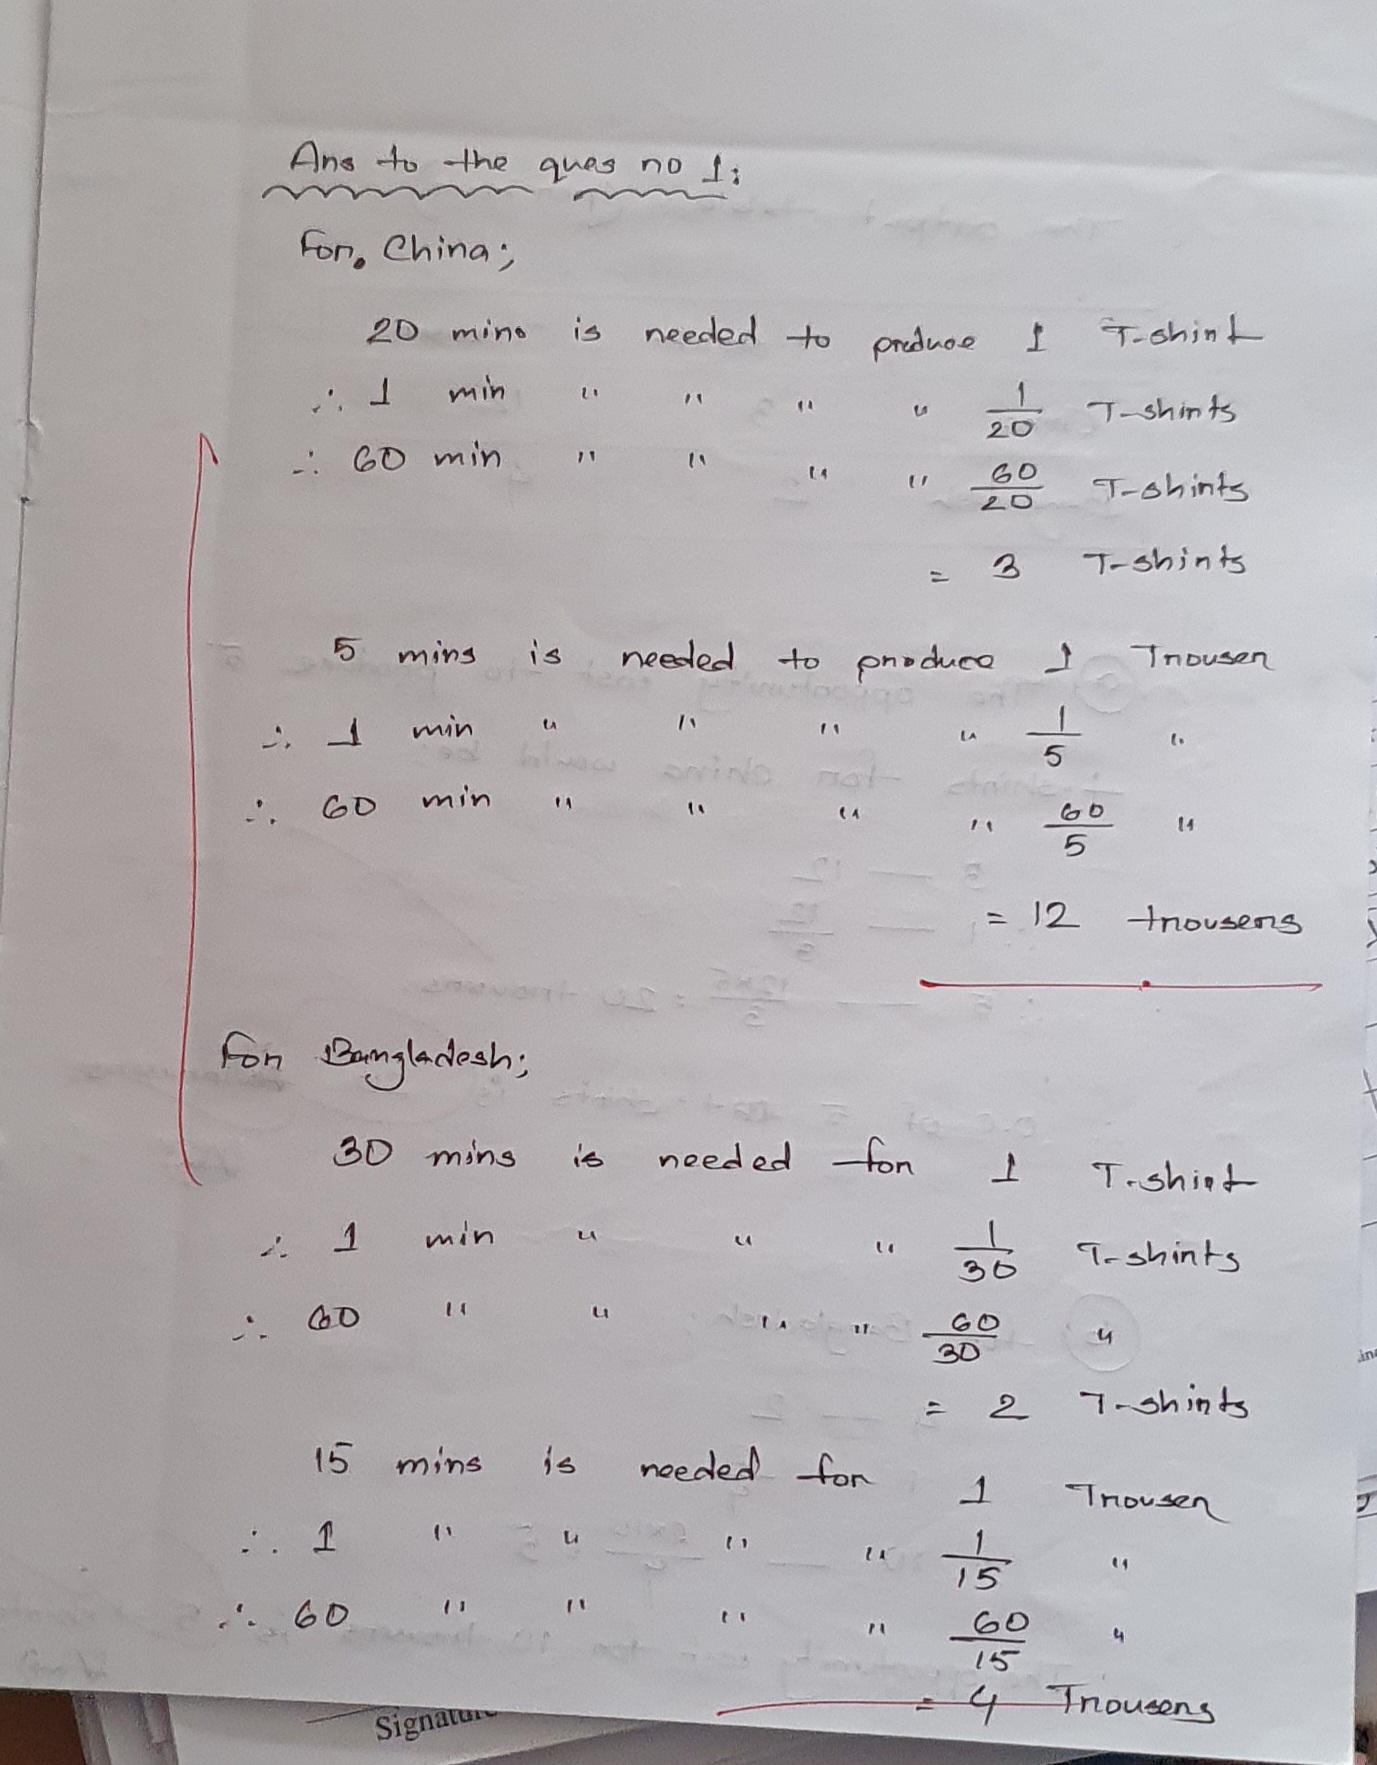 Ans to the ques no 1:
For, China;
20 mins is needed to produce 1 T-shirt
∴ 1 min " " " " 1/20 T-shirts
∴ 60 min " " " " 60/20 T-shirts
= 3 T-shirts
5 mins is needed to produce 1 Trouser
∴ 1 min " " " " 1/5 "
∴ 60 min " " " " 60/5 "
= 12 trousers
For Bangladesh;
30 mins is needed for 1 T-shirt
∴ 1 min " " " 1/30 T-shirts
∴ 60 " " " " 60/30 "
= 2 T-shirts
15 mins is needed for 1 Trouser
∴ 1 " " " " 1/15 "
∴ 60 " " " " 60/15 "
= 4 Trousers
Signature